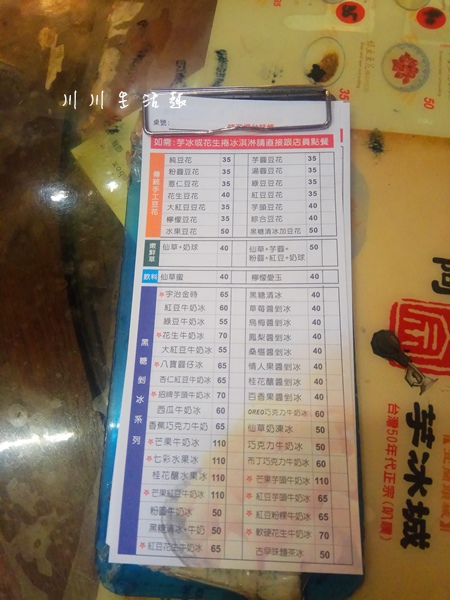 川川生活趣
桌號:
如需:芋冰或花生捲冰淇淋請直接跟店員點餐
傳統手工豆花
純豆花 35 芋圓豆花 35
粉圓豆花 35 湯圓豆花 35
薏仁豆花 35 綠豆豆花 35
花生豆花 40 紅豆豆花 35
大紅豆豆花 35 芋頭豆花 40
檸檬豆花 35 綜合豆花 40
水果豆花 50 黑糖清冰加豆花 50
嫩鮮草
仙草+奶球 40 仙草+芋圓+ 50
粉圓+紅豆+奶球
飲料
仙草蜜 40 檸檬愛玉 40
黑糖剉冰系列
宇治金時 65 黑糖清冰 40
紅豆牛奶冰 60 草莓醬剉冰 40
綠豆牛奶冰 55 烏梅醬剉冰 40
花生牛奶冰 70 鳳梨醬剉冰 40
大紅豆牛奶冰 55 桑椹醬剉冰 40
八寶圓仔冰 65 情人果醬剉冰 40
杏仁紅豆牛奶冰 65 桂花釀剉冰 40
招牌芋頭牛奶冰 70 百香果醬剉冰 40
西瓜牛奶冰 60 OREO巧克力牛奶冰 60
香蕉巧克力牛奶 65 仙草奶凍冰 50
芒果牛奶冰 110 巧克力牛奶冰 50
七彩水果冰 110 布丁巧克力牛奶冰 60
桂花釀水果冰 110 芒果芋頭牛奶冰 110
芒果紅豆牛奶冰 110 紅豆芋頭牛奶冰 65
粉圓牛奶冰 50 紅豆粉粿牛奶冰 65
黑糖清冰+牛奶 50 軟硬花生牛奶冰 70
紅豆花生牛奶冰 65 古早味麵茶冰 50
35
50
阿宗
芋冰城
台灣50年代正宗(叭嗼)